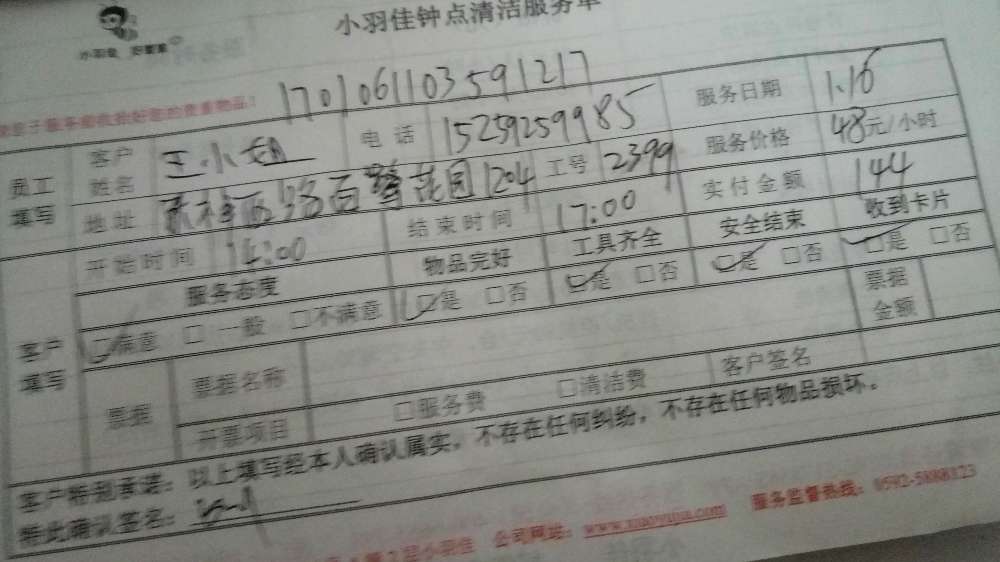 小羽佳钟点清洁服务单
小羽佳 好管家
1701061103591217
员工填写 客户姓名 王小姐 电话 15259259985 服务日期 1.16
地址 花园1204 工号 2399 服务价格 48元/小时
开始时间 14:00 结束时间 17:00 实付金额 144
客户填写 服务态度 物品完好 工具齐全 安全结束 收到卡片
□满意 □一般 □不满意 □是 □否 □是 □否 □是 □否 □是 □否
票据 票据名称 票据金额
开票项目 □服务费 □清洁费 客户签名
客户特别承诺：以上填写经本人确认属实，不存在任何纠纷，不存在任何物品损坏。
特此确认签名：
小羽佳 公司网站：www.xiaoyujia.com 服务监督热线：0592-5888123